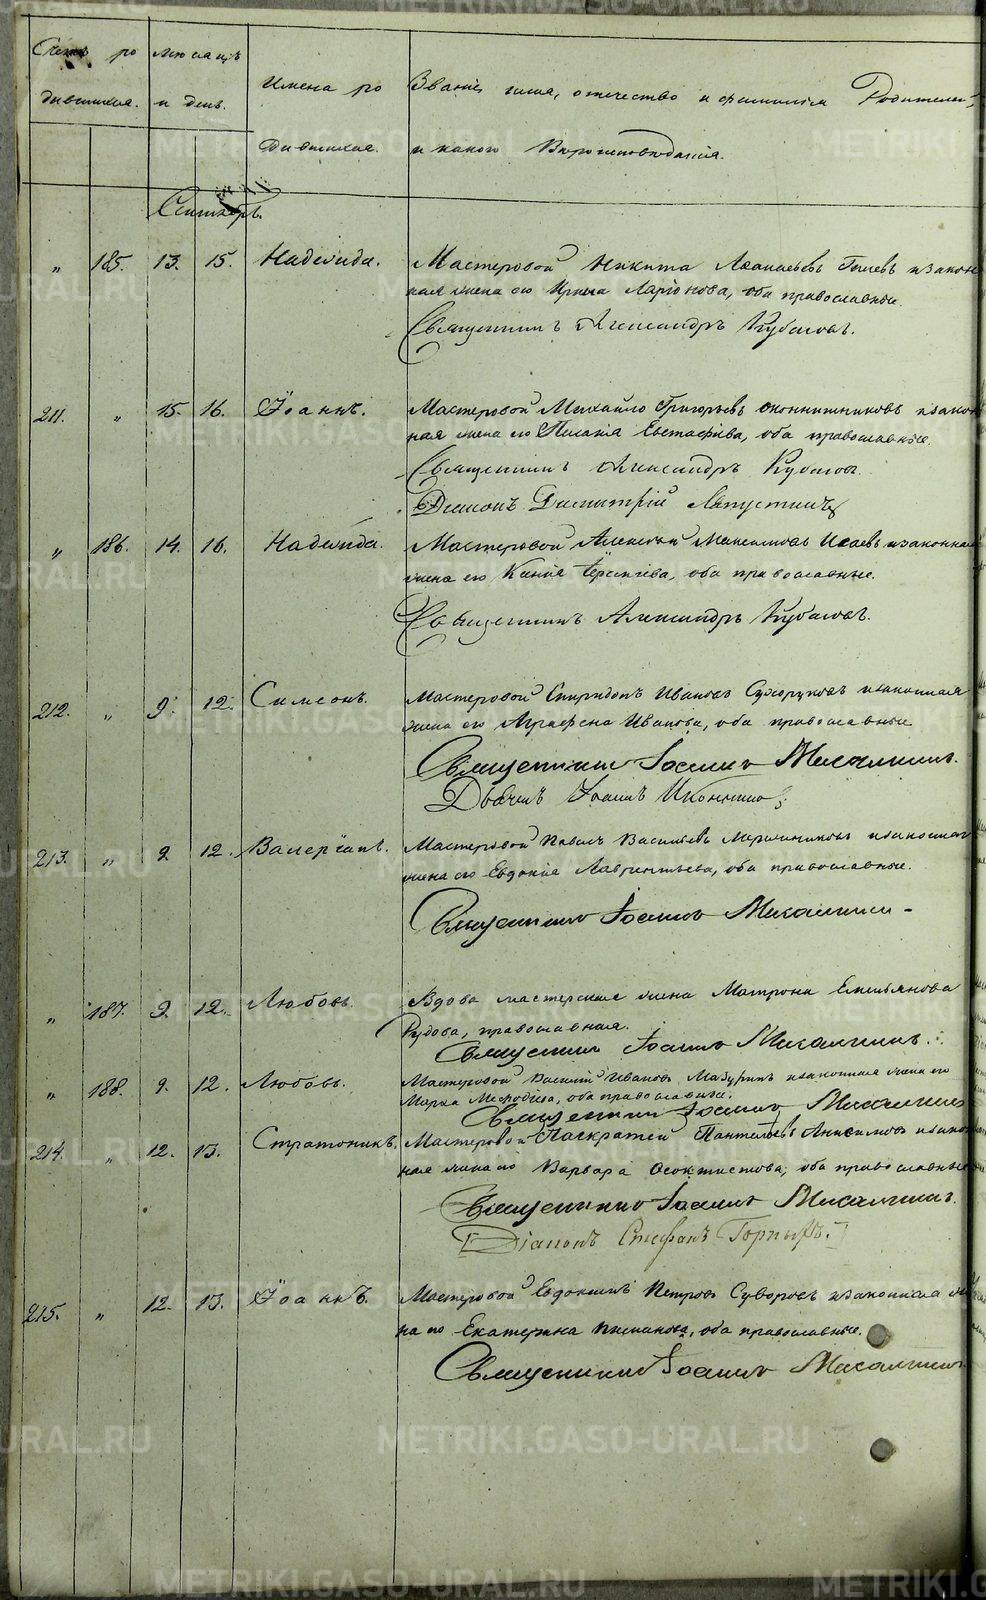 Счетъ ро Месяцъ Имена ро Званiе, имя, отечество и фамилiя Родителей,
дившихся. и день. дившихся. и какого Вѣроисповѣданiя.
Сентябрь.
„ 185. 13. 15. Надежда. Мастеровой Никита Аѳанасьевъ и закон
ная жена его Ирина Ларiонова, оба православные.
Священникъ Александръ Кубасовъ.
211. „ 15. 16. Iоаннъ. Мастеровой Михайло Григорьевъ Оконнишниковъ и закон
ная жена его Пелагiя Евстафiева, оба православные.
Священникъ Александръ Кубасовъ.
Дiаконъ Димитрiй
„ 186. 14. 16. Надежда. Мастеровой Алексѣй Максимовъ Исаевъ и законная
жена его оба православные.
Священникъ Александръ Кубасовъ.
212. „ 9. 12. Симеонъ. Мастеровой Спиридонъ Ивановъ Сухоруковъ и законная
жена его Аграфена Иванова, оба православные
Священникъ Iоаннъ
Дьячекъ Iоаннъ
213. „ 9. 12. Валерiанъ. Мастеровой Павелъ Васильевъ и законная
жена его Евдокiя Лаврентьева, оба православные.
Священникъ Iоаннъ
„ 187. 9. 12. Любовь. Вдова мастерская жена Матрона Емельянова
православная.
Священникъ Iоаннъ
„ 188. 9. 12. Любовь. Мастеровой Василiй Ивановъ Мазуринъ и законная жена его
Марья оба православные.
Священникъ Iоаннъ
214. „ 12. 13. Стратоникъ. Мастеровой Панкратей Пантелѣевъ Анисимовъ и закон
ная жена его Варвара Ѳеоктистова, оба православные
Священникъ Iоаннъ
Дiаконъ Стефанъ
215. „ 12. 13. Iоаннъ. Мастеровой Евдокимъ Петровъ Суворовъ и законная же
на его Екатерина оба православные.
Священникъ Iоаннъ
METRIKI.GASO-URAL.RU